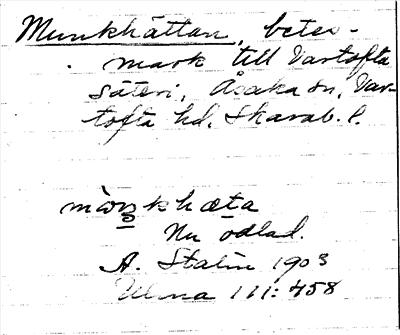 Munkhättan, betes-
mark till Vartofta
säteri, Åsaka sn, Var-
tofta hd, Skarab. l.
khæta
Nu odlad.
A. Stalin 1903
111: 458